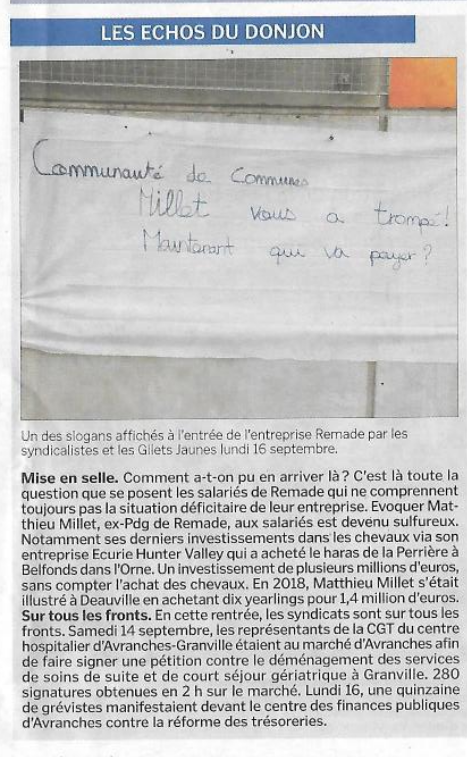 LES ECHOS DU DONJON
Communauté de Communes
Millet vous a trompé!
Maintenant qui va payer?
Un des slogans affichés à l'entrée de l'entreprise Remade par les
syndicalistes et les Gilets Jaunes lundi 16 septembre.
Mise en selle. Comment a-t-on pu en arriver là? C'est là toute la
question que se posent les salariés de Remade qui ne comprennent
toujours pas la situation déficitaire de leur entreprise. Evoquer Mat-
thieu Millet, ex-Pdg de Remade, aux salariés est devenu sulfureux.
Notamment ses derniers investissements dans les chevaux via son
entreprise Ecurie Hunter Valley qui a acheté le haras de la Perrière à
Belfonds dans l'Orne. Un investissement de plusieurs millions d'euros,
sans compter l'achat des chevaux. En 2018, Matthieu Millet s'était
illustré à Deauville en achetant dix yearlings pour 1,4 million d'euros.
Sur tous les fronts. En cette rentrée, les syndicats sont sur tous les
fronts. Samedi 14 septembre, les représentants de la CGT du centre
hospitalier d'Avranches-Granville étaient au marché d'Avranches afin
de faire signer une pétition contre le déménagement des services
de soins de suite et de court séjour gériatrique à Granville. 280
signatures obtenues en 2 h sur le marché. Lundi 16, une quinzaine
de grévistes manifestaient devant le centre des finances publiques
d'Avranches contre la réforme des trésoreries.